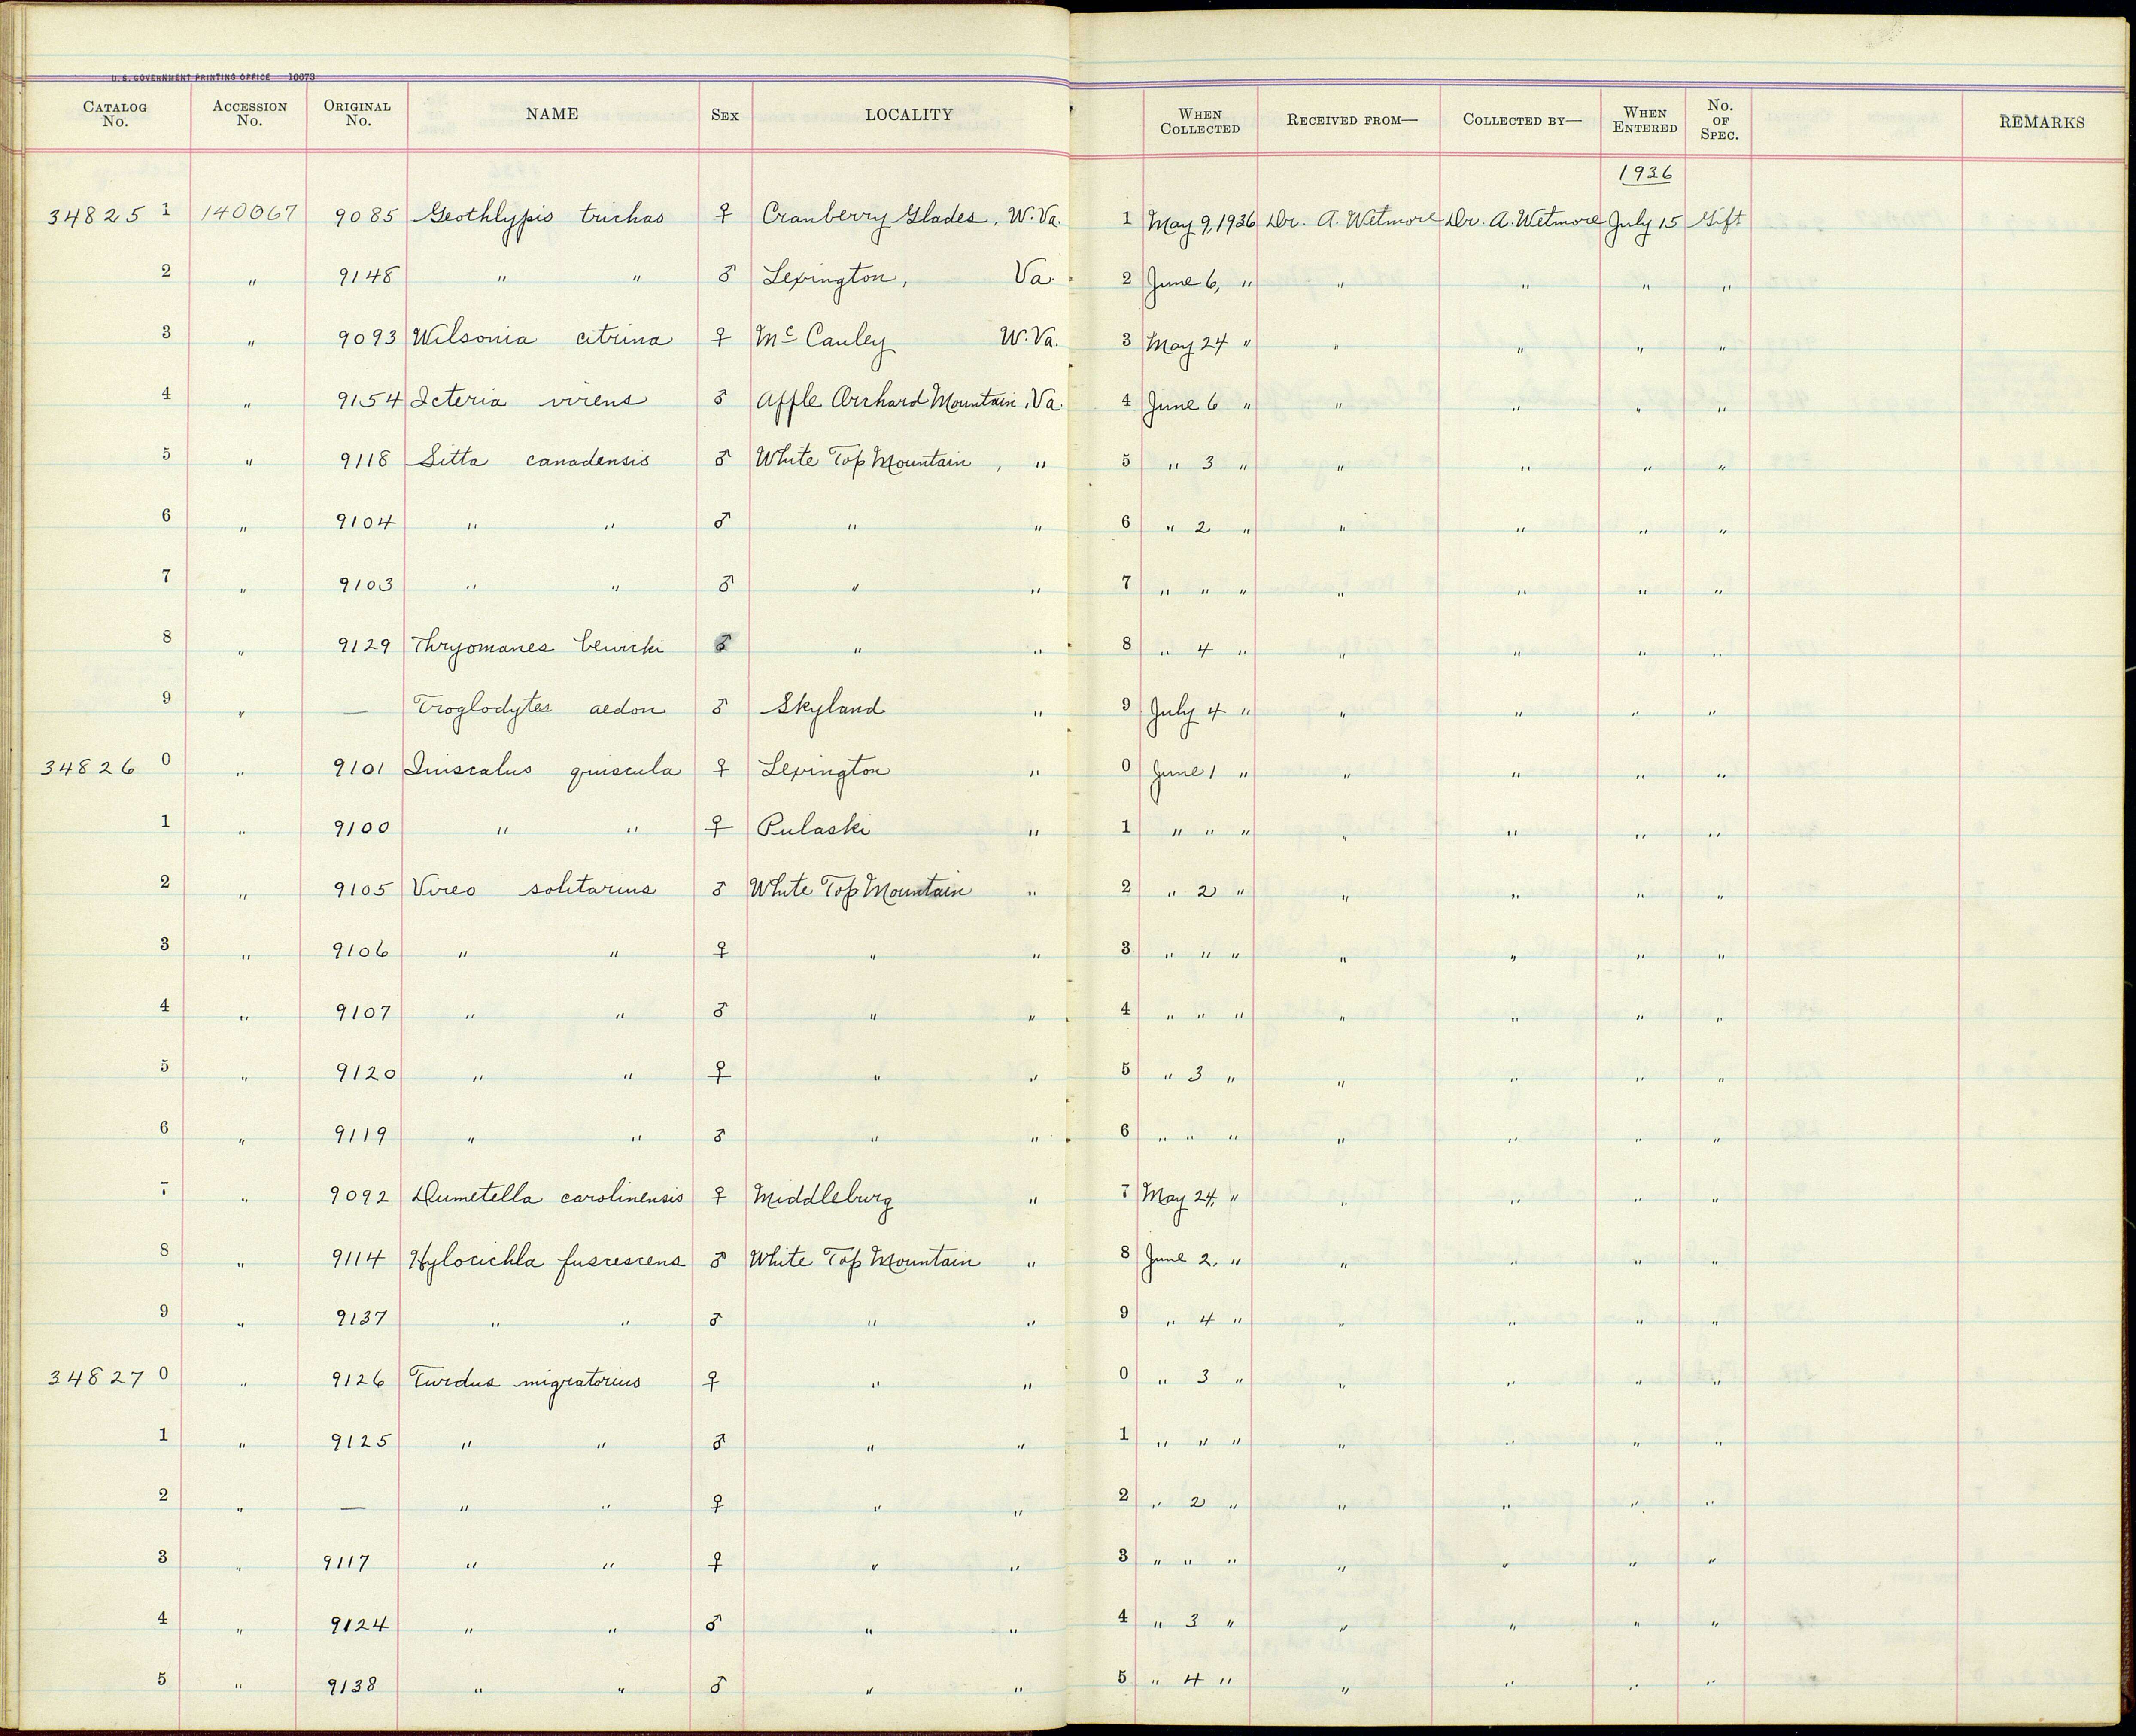 U. S. GOVERNMENT PRINTING OFFICE 10673
CATALOG No. ACCESSION No. ORIGINAL No. NAME SEX LOCALITY WHEN COLLECTED RECEIVED FROM— COLLECTED BY— WHEN ENTERED No. OF SPEC. REMARKS
1936
34825 1 140067 9085 Geothlypis trichas ♀ Cranberry Glades, W. Va. 1 May 9, 1936 Dr. A. Wetmore Dr. A. Wetmore July 15 Gift
2 " 9148 " " ♂ Lexington, Va. 2 June 6, " " " " "
3 " 9093 Wilsonia citrina ♀ McCauley W. Va. 3 May 24 " " " " "
4 " 9154 Icteria virens ♂ Apple Orchard Mountain, Va. 4 June 6 " " " " "
5 " 9118 Sitta canadensis ♂ White Top Mountain, " 5 " 3 " " " " "
6 " 9104 " " ♂ " " 6 " 2 " " " " "
7 " 9103 " " ♂ " " 7 " " " " " " "
8 " 9129 Thryomanes bewicki ♂ " " 8 " 4 " " " " "
9 " — Troglodytes aedon ♂ Skyland " 9 July 4 " " " " "
34826 0 " 9101 Quiscalus quiscula ♀ Lexington " 0 June 1 " " " " "
1 " 9100 " " ♀ Pulaski " 1 " " " " " " "
2 " 9105 Vireo solitarius ♂ White Top Mountain " 2 " 2 " " " " "
3 " 9106 " " ♀ " " 3 " " " " " " "
4 " 9107 " " ♂ " " 4 " " " " " " "
5 " 9120 " " ♀ " " 5 " 3 " " " " "
6 " 9119 " " ♂ " " 6 " " " " " " "
7 " 9092 Dumetella carolinensis ♀ Middleburg " 7 May 24, " " " " "
8 " 9114 Hylocichla fuscescens ♂ White Top Mountain " 8 June 2, " " " " "
9 " 9137 " " ♂ " " 9 " 4 " " " " "
34827 0 " 9126 Turdus migratorius ♀ " " 0 " 3 " " " " "
1 " 9125 " " ♂ " " 1 " " " " " " "
2 " — " " ♀ " " 2 " 2 " " " " "
3 " 9117 " " ♀ " " 3 " " " " " " "
4 " 9124 " " ♂ " " 4 " 3 " " " " "
5 " 9138 " " ♂ " " 5 " 4 " " " " "